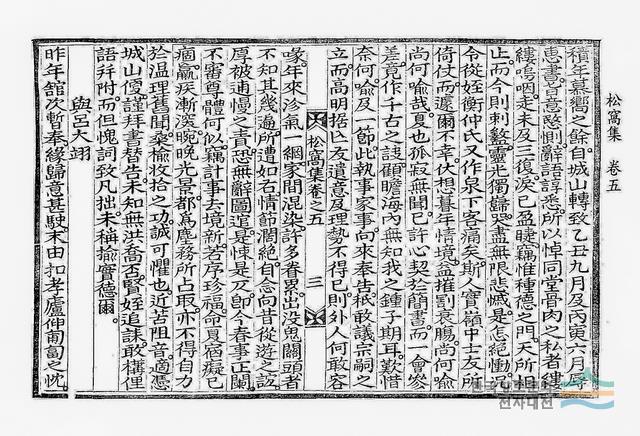 松窩集 卷五
積年慕嚮之餘自城山轉致乙丑九月及丙寅六月辱
惠書首意慇惻辭語諄悉所以悼同堂骨肉之私者縷
縷嗚咽走未及三復淚已盈睫竊惟種德之門天所
止而今則剌盭靈光獨歸哭盡無限悲慽是怎絶慟況
令從姪衡仲氏又作泉下客痛矣斯人實嶺中士友所
倚仗而遽爾不幸伏想暮年情境益摧割衰膓尚何喩
尚何喩哉夏也孤寂無聞已許心契於簡書而一會參
差竟作千古之誤顧瞻海內無知我之鍾子期耳歎惜
奈何喩及一節此執事家事向來奉告秪敢議宗嗣之
立而高明据亡友遺意及理勢不得已則外人何敢容
喙年來沴氣一網家間混染許多眷累出沒鬼關頭者
不知其幾遍所遭如右情節濶絶自念向昔從遊之誼
厚被逋慢之責恐無辭圖逭是悚是仄卽今春事正闌
不審尊體何似竊計事去境新若序珍福傾賀宿癡已
痼羸疾漸深晼晩光景都爲塵務所占取亦不得自力
於溫理舊聞桑楡收拾之功誠可懼也近苦阻音適憑
城山便謹拜書替告未知無洪喬否賢姪追誄敢構俚
語幷附而但愧詞致凡拙未稱揄實德爾
與呂大翊
昨年舘次暫奉緣歸意甚駛末由扣孝廬伸匍匐之忱
松窩集卷之五
三
한국학중앙연구원
전자대전